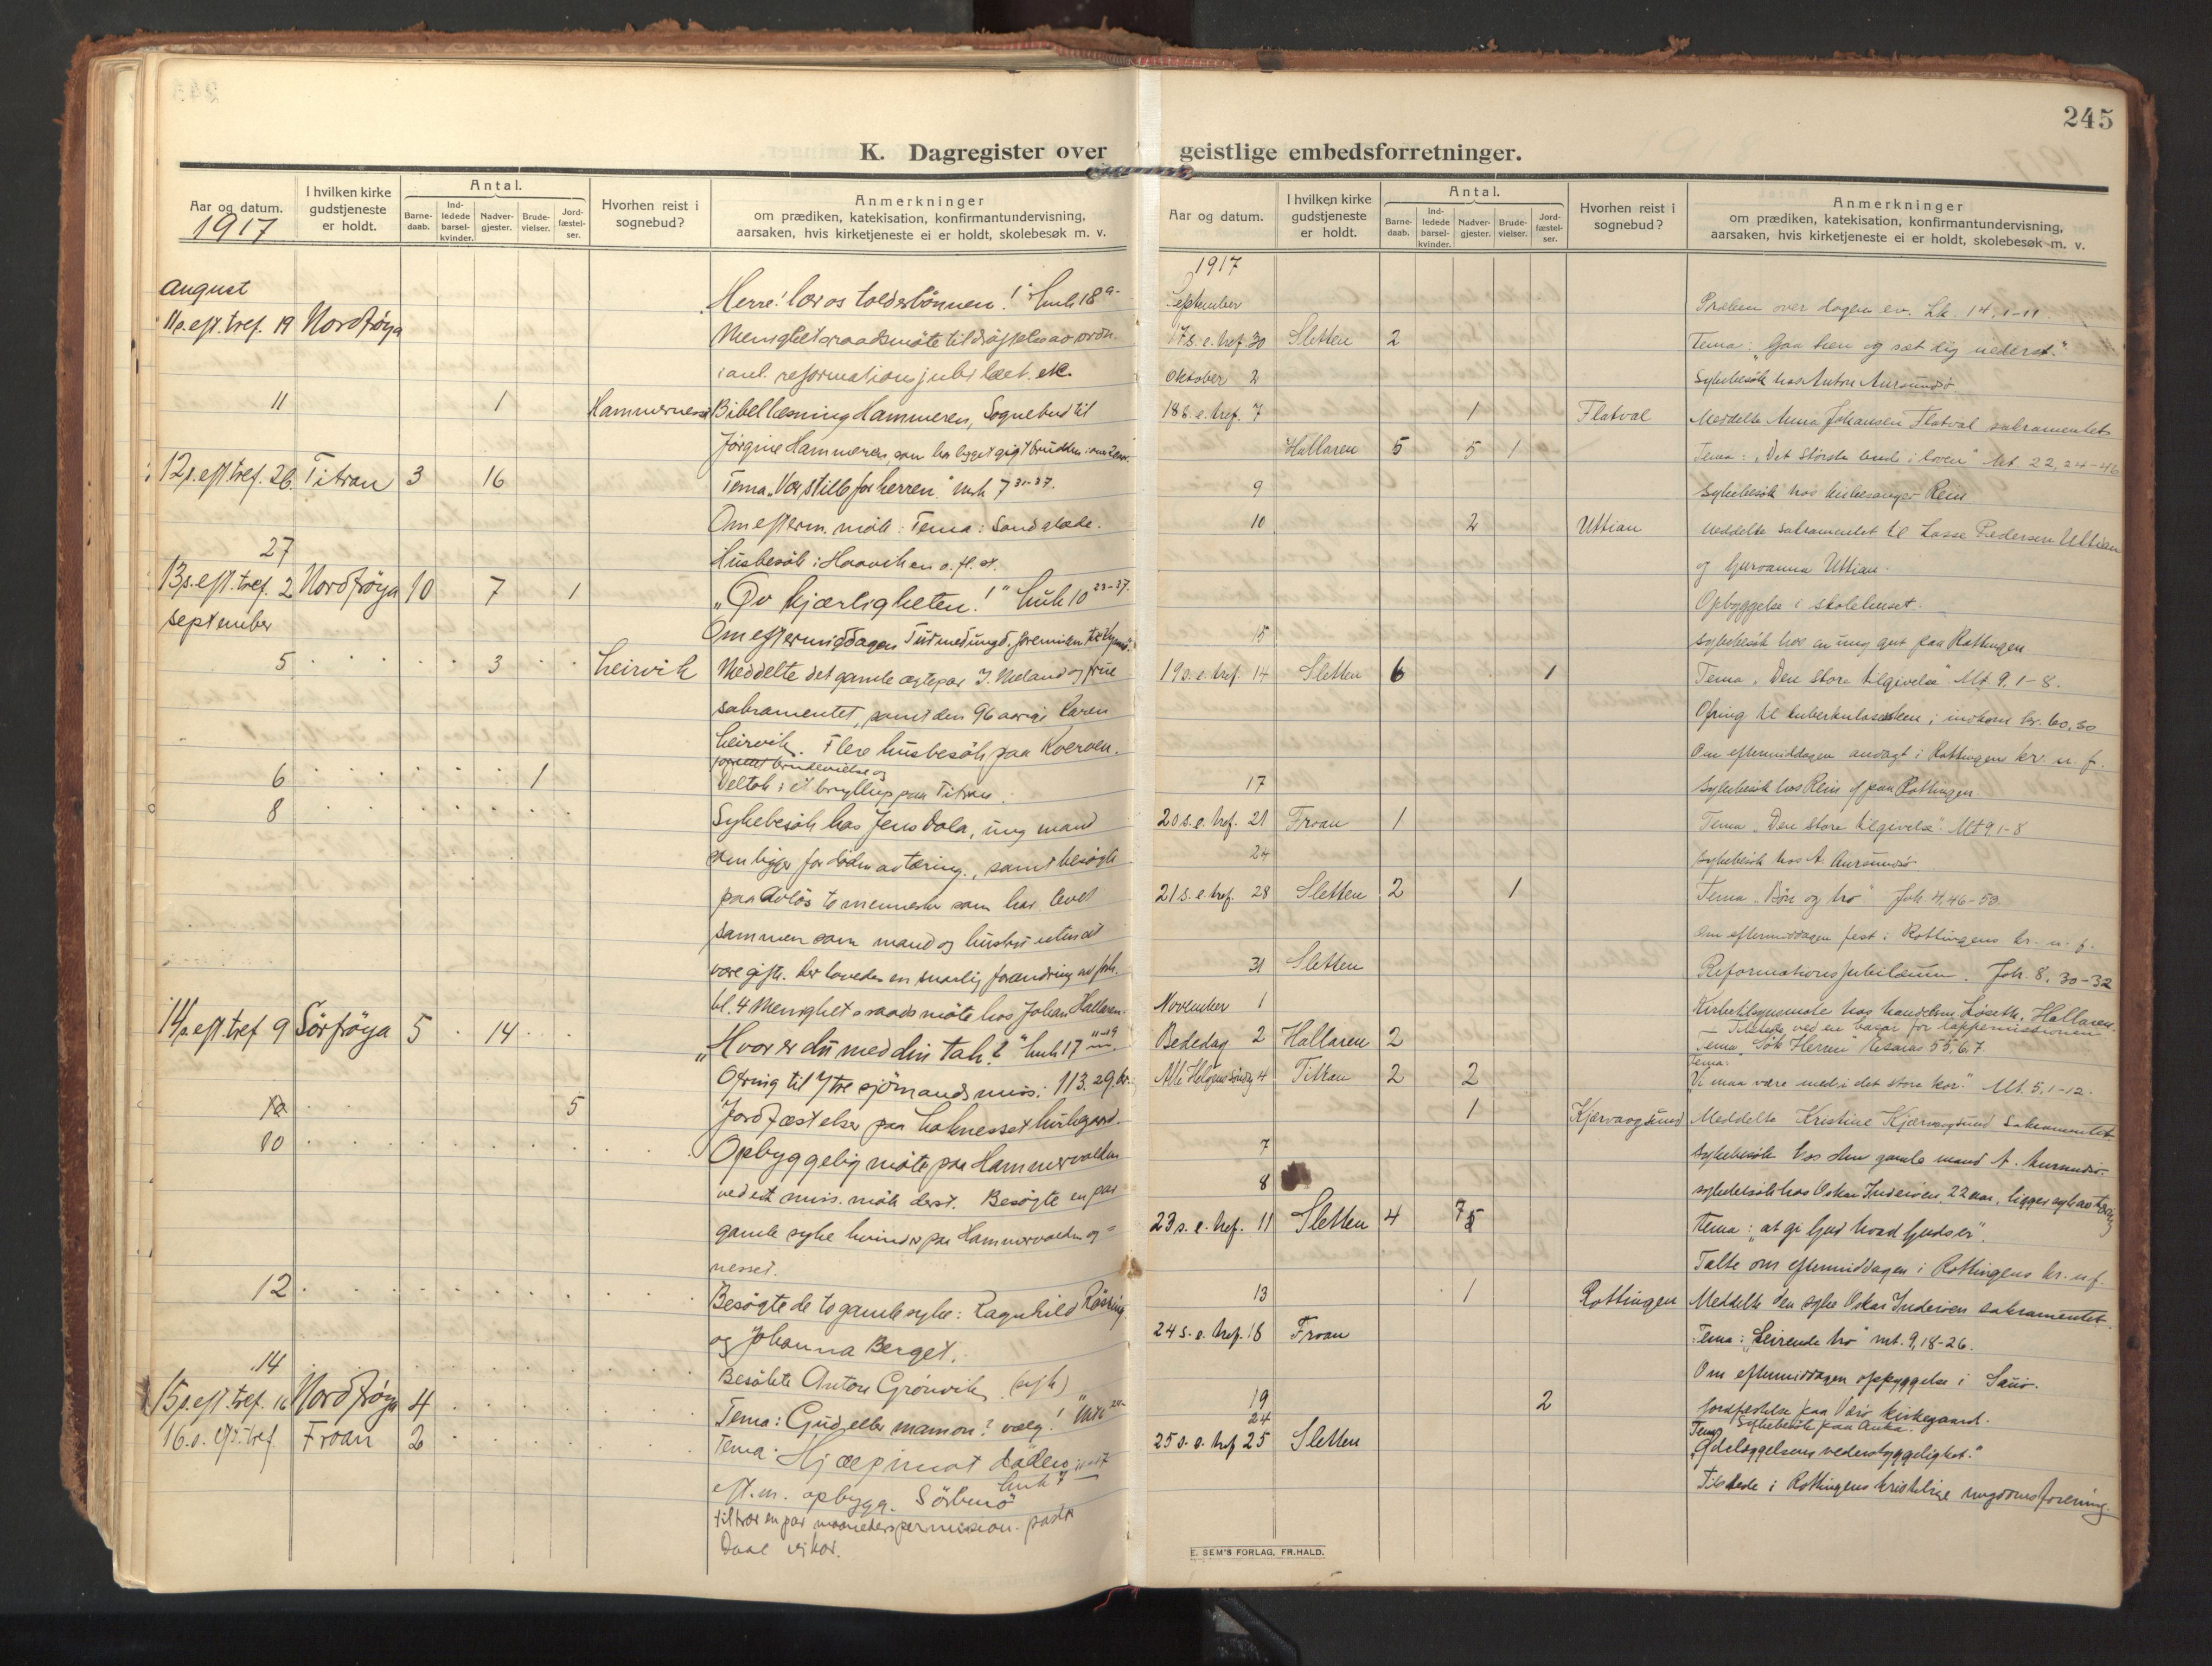 245
K. Dagregister over geistlige embedsforretninger.
Aar og datum.
I hvilken kirke gudstjeneste er holdt.
Antal.
Barne-daab.
Ind-ledede barsel-kvinder.
Nadver-gjester.
Brude-vielser.
Jord-fæstel-ser.
Hvorhen reist i sognebud?
Anmerkninger
om prædiken, katekisation, konfirmantundervisning,
aarsaken, hvis kirketjeneste ei er holdt, skolebesøk m. v.
1917
august Herre! lær os tolderbønnen! Luk 18
11 s. eft. tref. 19 Nordfrøya Menighetsraadsmøte til av ordn.
i anl. reformationsjubilæet. etc.
11 1 Hammernesset Bibellæsning Hammeren, Sognebud til
Jørgine Hammeren, som har ligget
12 s. eft. tref. 26. Titran 3 16 Tema "Vær stille for herren." mrk 7 31-37.
Om efterm. møte: Tema: Sand glæde.
27 Husbesøk i Haavik en a. fl. st.
13 s. eft. tref. 2 Nordfrøya 10 7 1 "Øv kjærligheten!" Luk 10 23-37.
september Om eftermiddagen Tur med ungd. foreningen
5 3 Leirvik Meddelte det gamle ægtepar J. Meland og frue
sakramentet, samt den 96 aarige Karen
Leirvik. Flere husbesøk paa Kverven.
brudevielse og
6 1 Deltok i et bryllup paa Titran.
8 Sykebesøk hos Jens Dala, ung mand
som ligger for døden av tæring, samt besøgte
paa Avløs to mennesker som har levet
sammen som mand og hustru uten at
være gifte. Der lovedes en snarlig forandring av forh.
kl. 4 Menighetsraadsmøte hos Johan Hallaren.
14 s. eft. tref. 9 Sørfrøya 5 14 "Hvor er du med din tak?" Luk 17 11-19
Ofring til Ytre sjømandsmiss: 113.29 kr.
5 Jordfæstelser paa kirkegaard.
10 Opbyggelig møte paa Hammervolden
ved et miss. møte derst. Besøgte en par
gamle syke kvinder paa Hammervolden og
nesset.
12 Besøgte de to gamle syke: Ragnhild
og Johanna Berget.
14 Besøkte Anton Grønvik (syk)
15 s. eft. tref. 16 Nordfrøya 4 Tema: Gud eller mamon? vælg!
16. s. eft. tref Froan 2 Tema: Hjælp imot døden 11-17
Luk 7
eft. m. opbygg. Sørburø
tiltrær en par maaneders permission. pastor
Daae vikar.
Aar og datum.
I hvilken kirke gudstjeneste er holdt.
Antal.
Barne-daab.
Ind-ledede barsel-kvinder.
Nadver-gjester.
Brude-vielser.
Jord-fæstel-ser.
Hvorhen reist i sognebud?
Anmerkninger
om prædiken, katekisation, konfirmantundervisning,
aarsaken, hvis kirketjeneste ei er holdt, skolebesøk m. v.
1917
September Præken over dagens ev. Lk. 14, 1-11.
17 s. e. tref. 30 Sletten 2 Tema: "Gaa hen og sæt dig nederst."
Oktober 2 Sykebesøk hos Anton Aursundø
18 s. e. tref. 7 1 Flatval Meddelte Anna Johansen Flatval sakramentet
Hallaren 5 5 1 Tema: "Det største bud i loven" Mt. 22, 24-46
9 Sykebesøk hos kirkesanger Rein
10 2 Uttian Meddelte sakramentet til Lasse Pedersen Uttian
og Guroanna Uttian.
Opbyggelse i skolehuset.
15 Sykebesøk hos en ung gut paa Rottingen
19 s. e. tref. 14 Sletten 6 1 Tema "Den store tilgivelse" Mt. 9, 1-8.
Ofring til tuberkulosesaken; indkom kr. 60,30
Om eftermiddagen andagt i Rottingens kr. u. f.
17 Sykebesøk hos Rein og paa Rottingen.
20 s. e. tref. 21 Froan 1 Tema "Den store tilgivelse" Mt 9, 1-8
24 Sykebesøk hos A. Aursundø
21 s. e. tref. 28 Sletten 2 1 Tema "Bøn og tro" Joh 4, 46-53.
Om eftermiddagen fest i Rottingens kr. u. f.
31 Sletten Reformationsjubilæum. Joh. 8, 30-32
November 1 Kirketilsynsmøte hos handelsm. Løseth, Hallaren.
— Tilstede ved en basar for lappemissionen
Bededag 2 Hallaren 2 Tema "Søk Herren" Esaias 55, 6, 7.
Tema:
Alle Helgens søndag 4 Titran 2 2 "Vi maa være med i det store kor." Mt. 5, 1-12.
1 Kjærvaagsund Meddelte Kristine Kjærvaagsund Sakramentet
7 Sykebesøk hos den gamle mand A. Aursundø.
8 Sykebesøk hos Oskar Inderøen, 22 aar, ligger syk av tæring
23 s. e. tref. 11 Sletten 4 7 Tema: "at gi Gud hvad Guds er".
Talte om eftermiddagen i Rottingens kr. u. f.
13 1 Rottingen Meddelte den syke Oskar Inderøen sakramentet.
24 s. e. tref. 18 Froan Tema: "Seirende tro" mt. 9, 18-26.
Om eftermiddagen opbyggelse i Sauø.
19 2 Jordfæstelse paa kirkegaard.
24 Sykebesøk paa
Tema
25 s. e. tref 25 Sletten "Ødelæggelsens vederstyggelighet."
Tilstede i Rottingens kristelige ungdomsforening.
E. SEM'S FORLAG, FR.HALD.